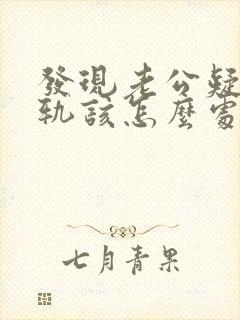 發現老公疑
軌該怎麼處
七月青果